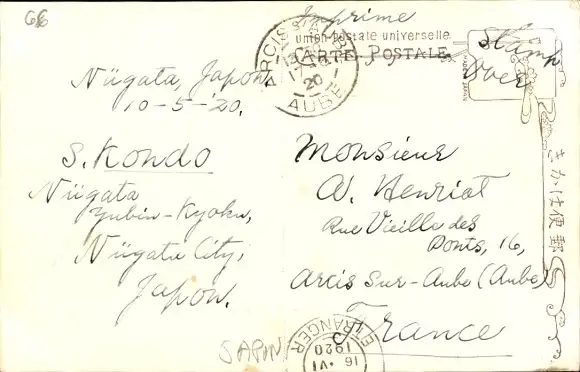 66
Imprime
union postale universelle
CARTE POSTALE
Stamp
over
ARCIS-S-AUBE
17-6
20
AUBE
Niigata, Japon.
10-5-'20.
S. Kondo
Niigata
Yubin-Kyoku,
Niigata City,
Japon.
Monsieur
A. Henriot
Rue Vieille des
Ponts, 16,
Arcis Sur-Aube (Aube)
France
きかは便郵
ETRANGER
16 VI
1920
JAPIN